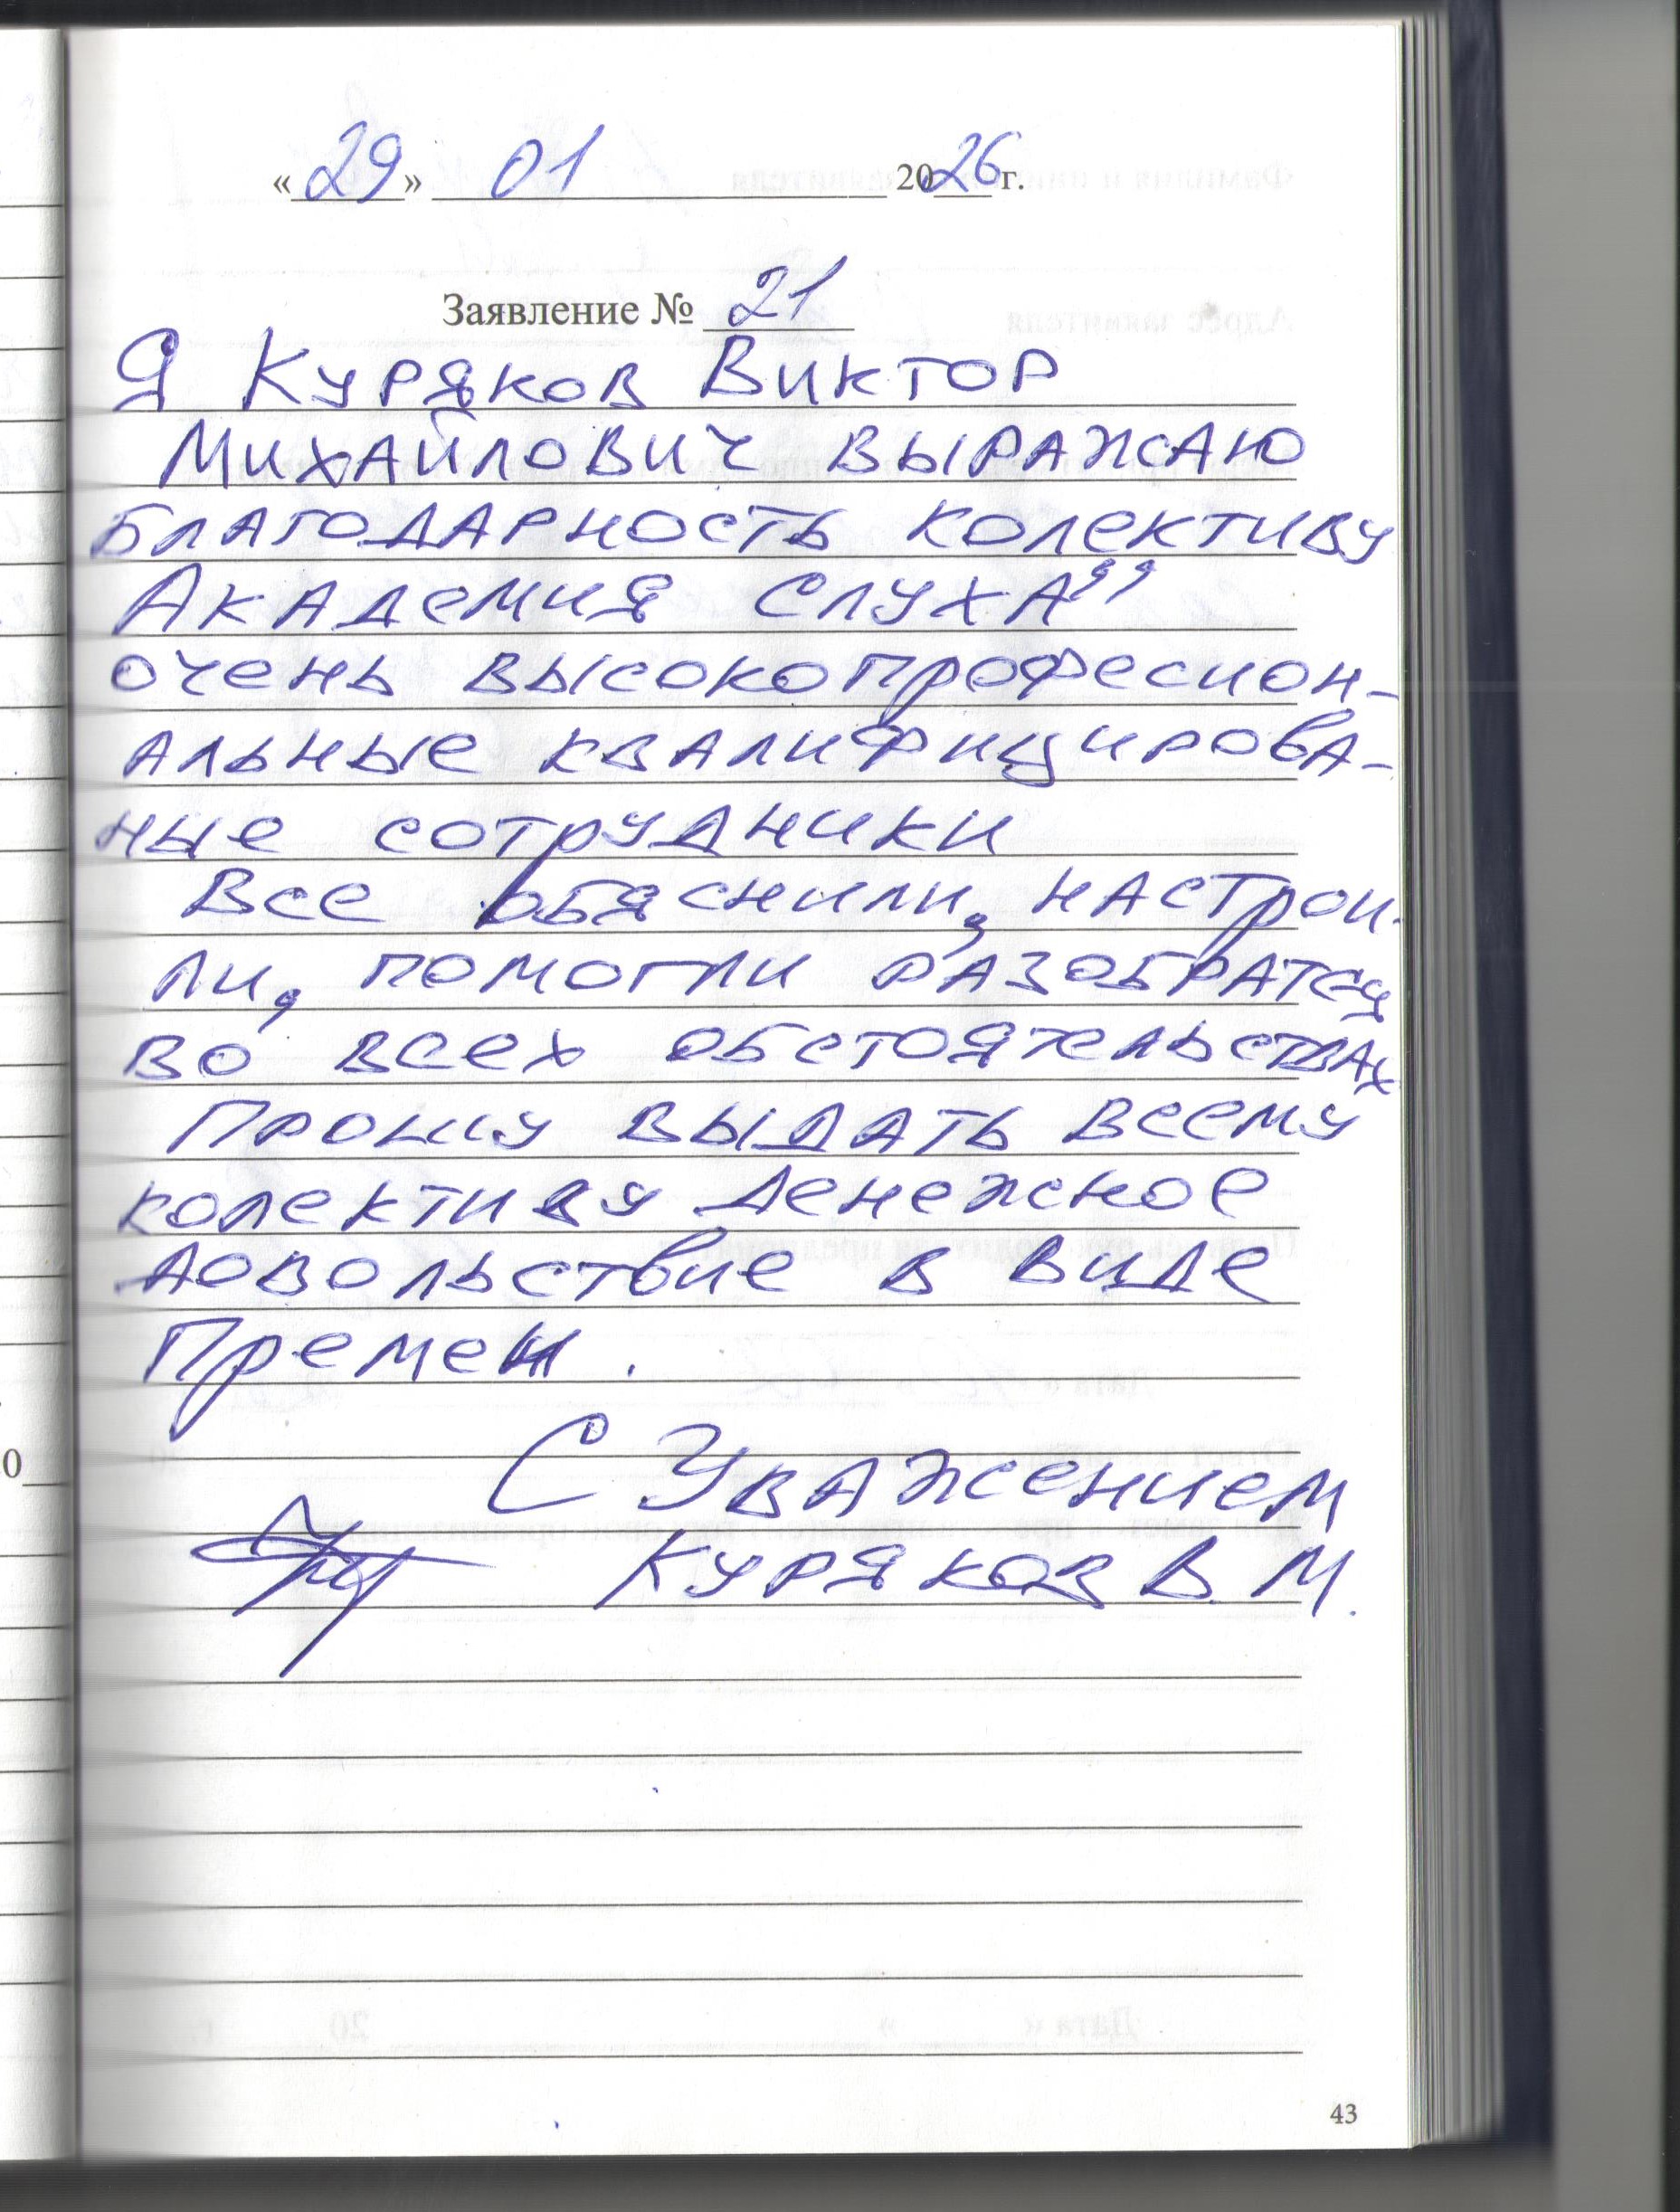 «29» 01 2026 г.
Заявление № 21
Я Куряков Виктор
Михайлович выражаю
благодарность колективу
Академия слуха”
очень высокопрофесион-
альные квалифицирова-
ные сотрудники
Все обяснили, настрои-
ли, помогли разобратся
во всех обстоятельствах
Прошу выдать всему
колективу денежное
довольствие в виде
С Уважением
Куряков В.М.
43